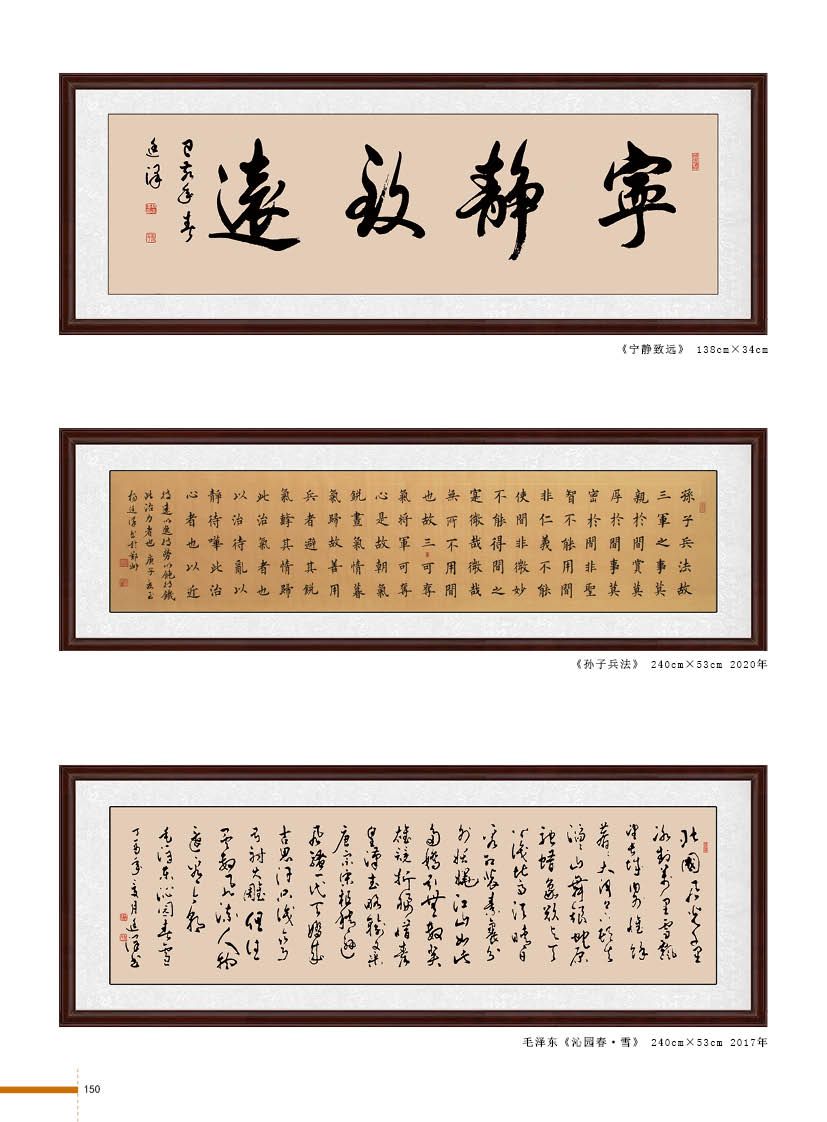 寧靜致遠
己亥年春
廷澤
《宁静致远》 138cm×34cm
孫子兵法故
三軍之事莫
親於間賞莫
厚於間事莫
密於間非聖
智不能用間
非仁義不能
使間非微妙
不能得間之
寔微哉微哉
無所不用間
也故三可奪
氣将軍可奪
心是故朝氣
銳晝氣情暮
氣歸故善用
兵者避其銳
氣其情歸
此治氣者也
以治待亂以
靜待嘩此治
心者也以近
待遠以逸待勞以飽待饑
此治力者也 庚子
杨廷泽书於郑州
《孙子兵法》 240cm×53cm 2020年
北國風光千里
冰封萬里雪飄
望長城內外惟餘
莽莽大河上下頓失
滔滔山舞銀蛇原
馳蜡象欲与天
公試比高須晴日
看紅装素裹分
外妖嬈江山如此
多嬌引無數英
雄競折腰惜秦
皇漢武略輸文采
唐宗宋祖稍遜
風騷一代天驕成
吉思汗只識彎
弓射大雕俱往
矣數風流人物
還看今朝
毛澤東沁园春雪
丁酉年夏月廷澤书
毛泽东《沁园春·雪》 240cm×53cm 2017年
150